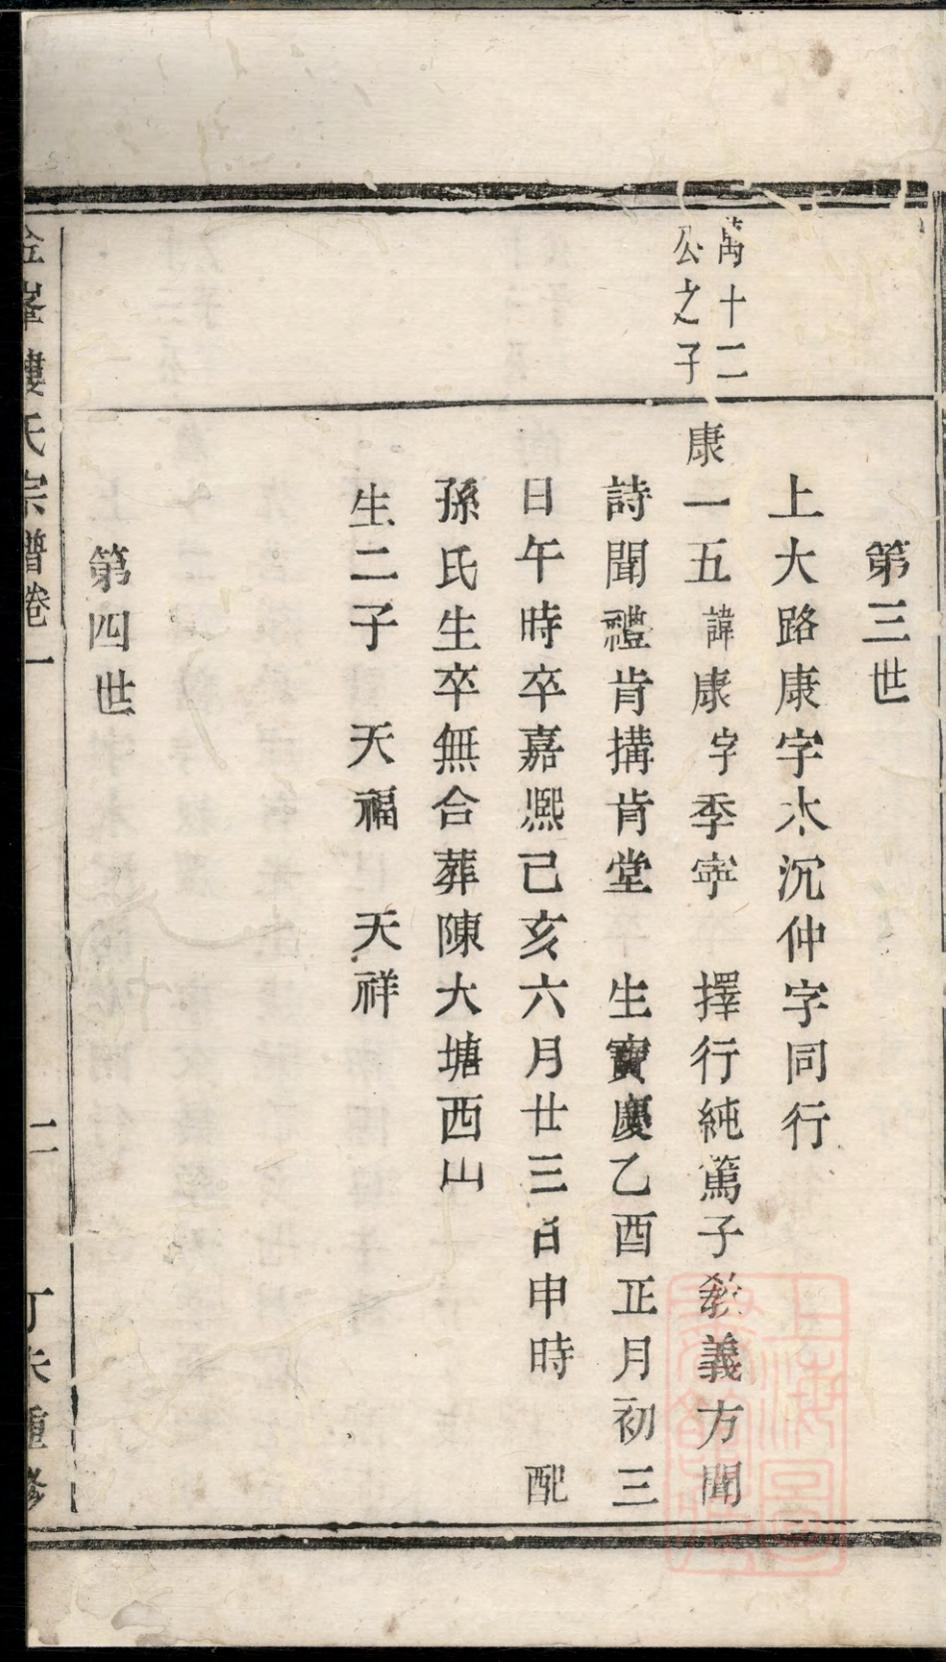 第三世
上大路康字太沉仲字同行
萬十二
公之子
康一五諱康字季寧　擇行純篤子教義方聞
詩聞禮肯搆肯堂　生寶慶乙酉正月初三
日午時卒嘉熙己亥六月廿三日申時　配
孫氏生卒無合葬陳大塘西山
生二子　天福　天祥
第四世
峯樓氏宗譜卷一　二　丁未重修
上海圖